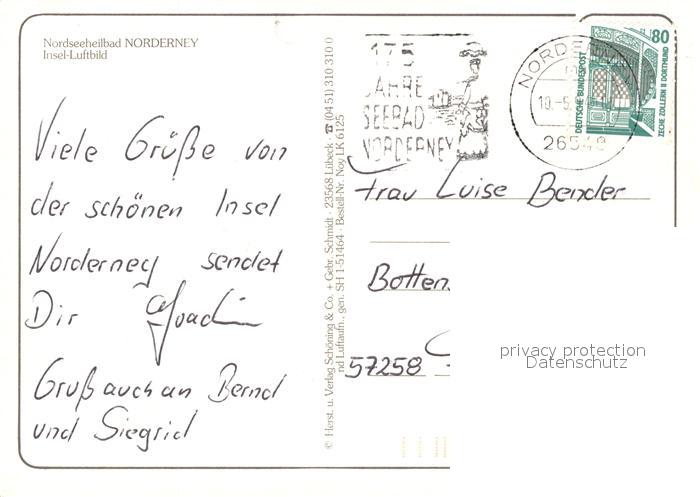 Nordseeheilbad NORDERNEY
Insel-Luftbild
Viele Grüße von
der schönen Insel
Norderney sendet
Dir Joachim
Gruß auch an Bernd
und Siegrid
© Herst. u. Verlag Schöning & Co. + Gebr. Schmidt · 23568 Lübeck · ☎ (04 51) 310 310 0
nd Luftaufn., gen. SH 1-51464 · Bestell-Nr. Noy LK 6125
175
JAHRE
SEEBAD
NORDERNEY
NORDE
10.-5.
26548
80
DEUTSCHE BUNDESPOST
ZECHE ZOLLERN II DORTMUND
Frau Luise Bender
Botten
57258
privacy protection
Datenschutz